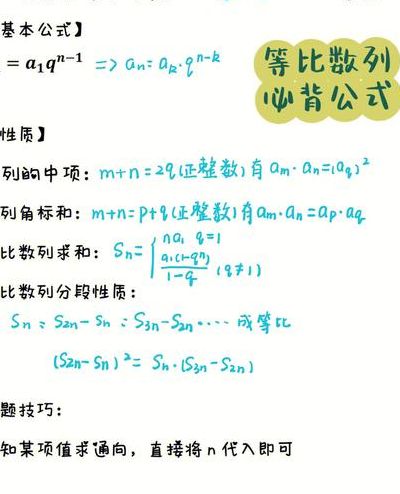 基本公式】
= a₁qⁿ⁻¹ => aₙ = aₖ·qⁿ⁻ᵏ
等比数列
必背公式
性质】
列的中项：m+n=2q(正整数)有aₘ·aₙ=(a_q)²
列角标和：m+n=p+q(正整数)有aₘ·aₙ=aₚ·a_q
比数列求和：Sₙ={na₁ q=1
a₁(1-qⁿ)/1-q (q≠1)
比数列分段性质：
Sₙ：S₂ₙ-Sₙ：S₃ₙ-S₂ₙ····成等比
(S₂ₙ-Sₙ)²=Sₙ·(S₃ₙ-S₂ₙ)
题技巧：
知某项值求通向，直接将n代入即可